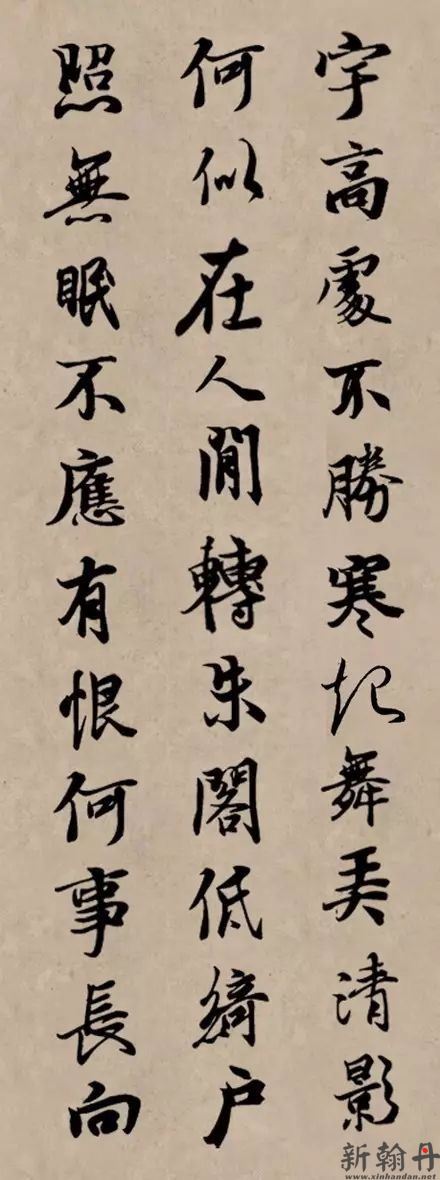 宇高處不勝寒起舞弄清影
何似在人間轉朱閣低綺户
照無眠不應有恨何事長向
新翰丹
www.xinhandan.net